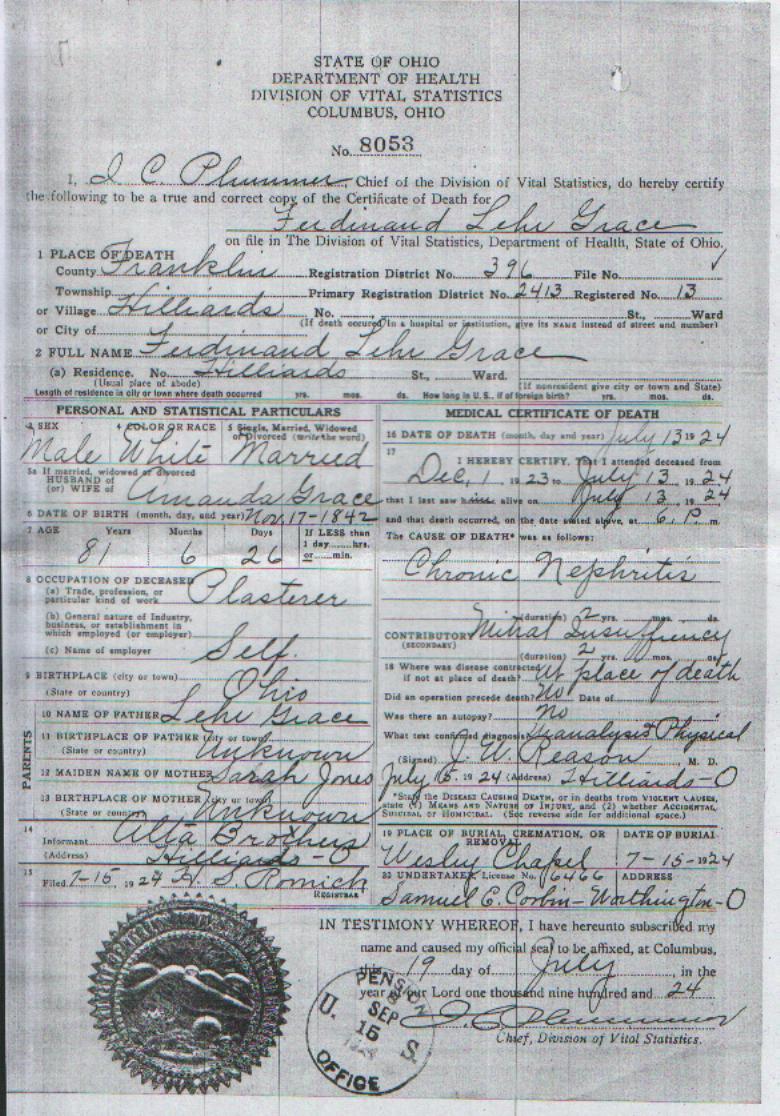 STATE OF OHIO
DEPARTMENT OF HEALTH
DIVISION OF VITAL STATISTICS
COLUMBUS, OHIO
No. 8053
I, I C. Plummer, Chief of the Division of Vital Statistics, do hereby certify
the following to be a true and correct copy of the Certificate of Death for
Ferdinand Lehr Grace
on file in The Division of Vital Statistics, Department of Health, State of Ohio.
1 PLACE OF DEATH
County Franklin Registration District No. 396 File No.
Township Primary Registration District No. 2413 Registered No. 13
or Village Hilliards No. St., Ward
(If death occured in a hospital or institution, give its NAME instead of street and number)
or City of
2 FULL NAME Ferdinand Lehr Grace
(a) Residence. No. Hilliards St., Ward.
(Usual place of abode) (If nonresident give city or town and State)
Length of residence in city or town where death occurred yrs. mos. ds. How long in U.S., if of foreign birth? yrs. mos. ds.
PERSONAL AND STATISTICAL PARTICULARS
3 SEX 4 COLOR OR RACE 5 Single, Married, Widowed or Divorced (write the word)
Male White Married
5a If married, widowed or divorced
HUSBAND of
(or) WIFE of Amanda Grace
6 DATE OF BIRTH (month, day, and year) Nov. 17-1842
7 AGE Years Months Days If LESS than
1 day hrs.
or min.
81 6 26
8 OCCUPATION OF DECEASED
(a) Trade, profession, or
particular kind of work Plasterer
(b) General nature of Industry,
business, or establishment in
which employed (or employer)
(c) Name of employer Self.
9 BIRTHPLACE (city or town)
(State or country) Ohio
PARENTS
10 NAME OF FATHER Lehr Grace
11 BIRTHPLACE OF FATHER (city or town)
(State or country) Unknown
12 MAIDEN NAME OF MOTHER Sarah Jones
13 BIRTHPLACE OF MOTHER (city or town)
(State or country) Unknown
14
Informant Alta Brothers
(Address) Hilliards-O
15
Filed 7-15, 1924 H. S. Romich
REGISTRAR
MEDICAL CERTIFICATE OF DEATH
16 DATE OF DEATH (month, day and year) July 13 1924
17 I HEREBY CERTIFY, That I attended deceased from
Dec, 1 1923 to July 13, 1924
that I last saw him alive on July 13, 1924
and that death occurred, on the date stated above, at 6. P. m.
The CAUSE OF DEATH* was as follows:
Chronic Nephritis
(duration) 2 yrs. mos. ds.
CONTRIBUTORY Mitral Insuffency
(SECONDARY)
(duration) 2 yrs. mos. ds.
18 Where was disease contracted
if not at place of death? At place of death
Did an operation precede death? No Date of
Was there an autopay? No
What test confirmed diagnosis? Uranalysis & Physical
(Signed) J. W. Reason M. D.
July 15, 1924 (Address) Hilliards-O
*State the DISEASE CAUSING DEATH, or in deaths from VIOLENT CAUSES,
state (1) MEANS AND NATURE OF INJURY, and (2) whether ACCIDENTAL,
SUICIDAL or HOMICIDAL. (See reverse side for additional space.)
19 PLACE OF BURIAL, CREMATION, OR REMOVAL DATE OF BURIAL
Wesley Chapel 7-15-1924
20 UNDERTAKER, License No. 6466 ADDRESS
Samuel E. Corbin-Worthington-O
IN TESTIMONY WHEREOF, I have hereunto subscribed my
name and caused my official seal to be affixed, at Columbus,
this 19 day of July, in the
year of our Lord one thousand nine hundred and 24
I C Plummer
Chief, Division of Vital Statistics.
U. S. PENSION OFFICE
SEP
15